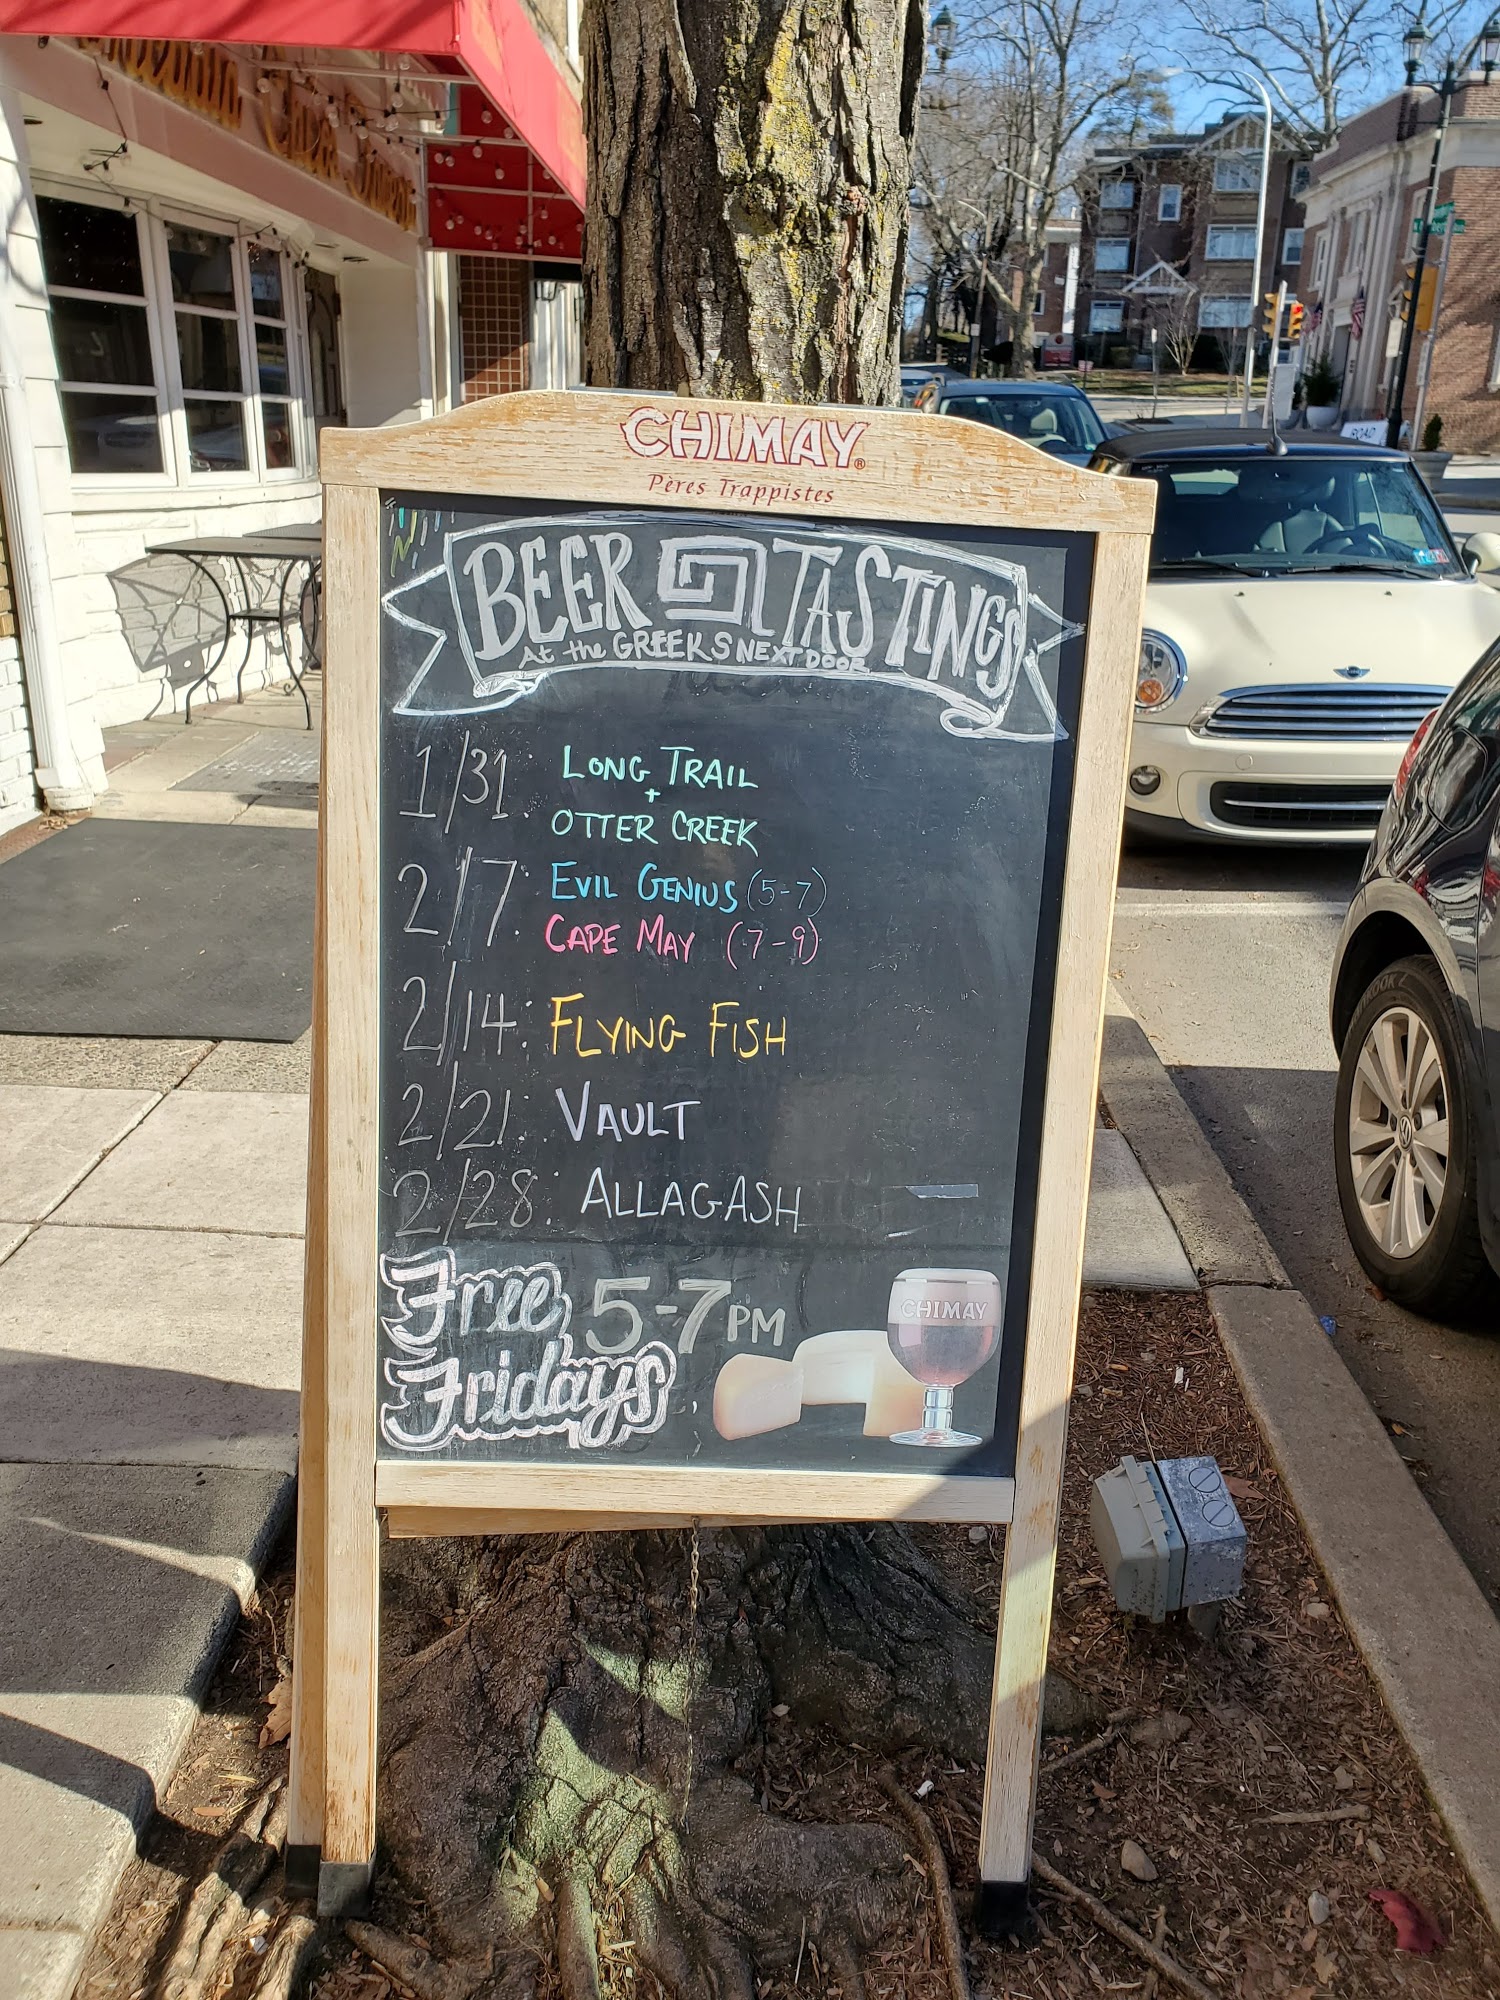 CHIMAY®
Pères Trappistes
BEER TASTINGS
At the GREEKS NEXT DOOR
1/31: LONG TRAIL
+
OTTER CREEK
2/7: EVIL GENIUS (5-7)
CAPE MAY (7-9)
2/14: FLYING FISH
2/21: VAULT
2/28: ALLAGASH
Free 5-7PM
Fridays
CHIMAY
ROAD